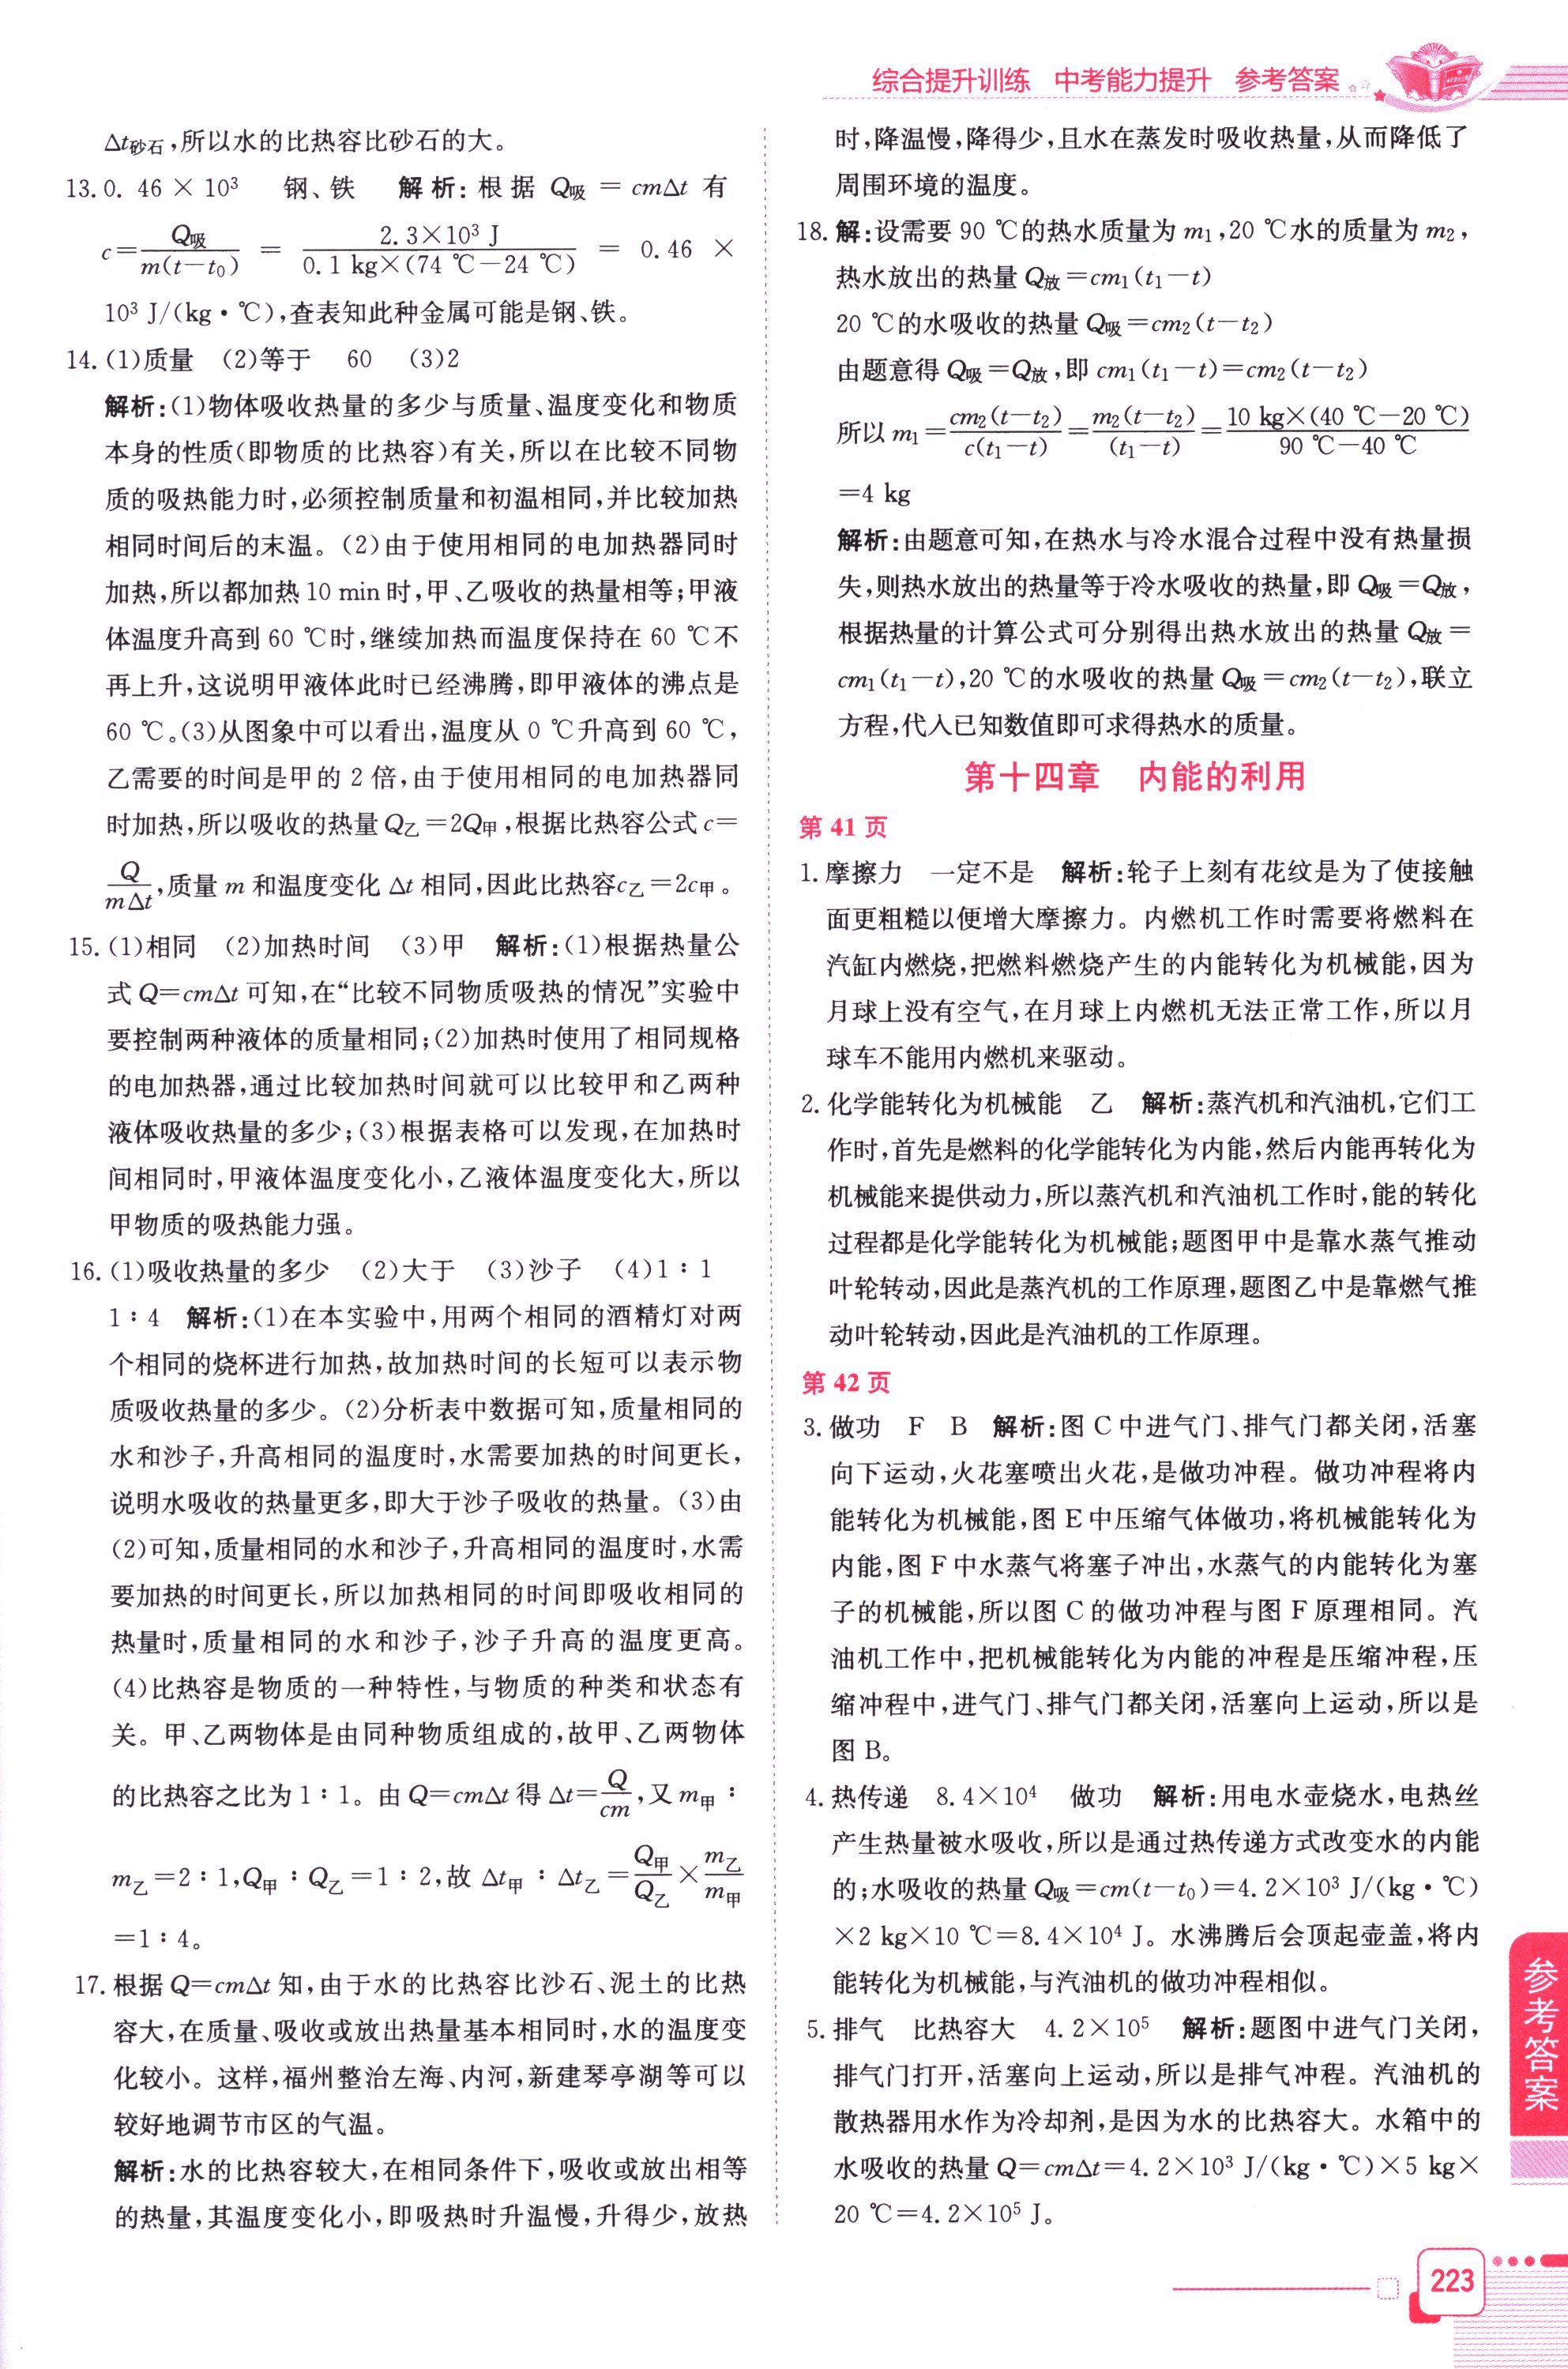 综合提升训练 中考能力提升 参考答案
Δt砂石,所以水的比热容比砂石的大。
13.0.46×10³ 钢、铁 解析:根据 Q吸=cmΔt 有
c=Q吸/m(t-t₀)=2.3×10³ J/0.1 kg×(74 ℃-24 ℃)=0.46×
10³ J/(kg·℃),查表知此种金属可能是钢、铁。
14.(1)质量 (2)等于 60 (3)2
解析:(1)物体吸收热量的多少与质量、温度变化和物质
本身的性质(即物质的比热容)有关,所以在比较不同物
质的吸热能力时,必须控制质量和初温相同,并比较加热
相同时间后的末温。(2)由于使用相同的电加热器同时
加热,所以都加热 10 min 时,甲、乙吸收的热量相等;甲液
体温度升高到 60 ℃时,继续加热而温度保持在 60 ℃不
再上升,这说明甲液体此时已经沸腾,即甲液体的沸点是
60 ℃。(3)从图象中可以看出,温度从 0 ℃升高到 60 ℃,
乙需要的时间是甲的 2 倍,由于使用相同的电加热器同
时加热,所以吸收的热量 Q乙=2Q甲,根据比热容公式 c=
Q/mΔt,质量 m 和温度变化 Δt 相同,因此比热容c乙=2c甲。
15.(1)相同 (2)加热时间 (3)甲 解析:(1)根据热量公
式 Q=cmΔt 可知,在“比较不同物质吸热的情况”实验中
要控制两种液体的质量相同;(2)加热时使用了相同规格
的电加热器,通过比较加热时间就可以比较甲和乙两种
液体吸收热量的多少;(3)根据表格可以发现,在加热时
间相同时,甲液体温度变化小,乙液体温度变化大,所以
甲物质的吸热能力强。
16.(1)吸收热量的多少 (2)大于 (3)沙子 (4)1∶1
1∶4 解析:(1)在本实验中,用两个相同的酒精灯对两
个相同的烧杯进行加热,故加热时间的长短可以表示物
质吸收热量的多少。(2)分析表中数据可知,质量相同的
水和沙子,升高相同的温度时,水需要加热的时间更长,
说明水吸收的热量更多,即大于沙子吸收的热量。(3)由
(2)可知,质量相同的水和沙子,升高相同的温度时,水需
要加热的时间更长,所以加热相同的时间即吸收相同的
热量时,质量相同的水和沙子,沙子升高的温度更高。
(4)比热容是物质的一种特性,与物质的种类和状态有
关。甲、乙两物体是由同种物质组成的,故甲、乙两物体
的比热容之比为 1∶1。由 Q=cmΔt 得 Δt=Q/cm,又 m甲∶
m乙=2∶1,Q甲∶Q乙=1∶2,故 Δt甲∶Δt乙=Q甲/Q乙×m乙/m甲
=1∶4。
17.根据 Q=cmΔt 知,由于水的比热容比沙石、泥土的比热
容大,在质量、吸收或放出热量基本相同时,水的温度变
化较小。这样,福州整治左海、内河,新建琴亭湖等可以
较好地调节市区的气温。
解析:水的比热容较大,在相同条件下,吸收或放出相等
的热量,其温度变化小,即吸热时升温慢,升得少,放热
时,降温慢,降得少,且水在蒸发时吸收热量,从而降低了
周围环境的温度。
18.解:设需要 90 ℃的热水质量为 m₁,20 ℃水的质量为 m₂,
热水放出的热量 Q放=cm₁(t₁-t)
20 ℃的水吸收的热量 Q吸=cm₂(t-t₂)
由题意得 Q吸=Q放,即 cm₁(t₁-t)=cm₂(t-t₂)
所以 m₁=cm₂(t-t₂)/c(t₁-t)=m₂(t-t₂)/(t₁-t)=10 kg×(40 ℃-20 ℃)/90 ℃-40 ℃
=4 kg
解析:由题意可知,在热水与冷水混合过程中没有热量损
失,则热水放出的热量等于冷水吸收的热量,即 Q吸=Q放,
根据热量的计算公式可分别得出热水放出的热量 Q放=
cm₁(t₁-t),20 ℃的水吸收的热量 Q吸=cm₂(t-t₂),联立
方程,代入已知数值即可求得热水的质量。
第十四章 内能的利用
第 41 页
1.摩擦力 一定不是 解析:轮子上刻有花纹是为了使接触
面更粗糙以便增大摩擦力。内燃机工作时需要将燃料在
汽缸内燃烧,把燃料燃烧产生的内能转化为机械能,因为
月球上没有空气,在月球上内燃机无法正常工作,所以月
球车不能用内燃机来驱动。
2.化学能转化为机械能 乙 解析:蒸汽机和汽油机,它们工
作时,首先是燃料的化学能转化为内能,然后内能再转化为
机械能来提供动力,所以蒸汽机和汽油机工作时,能的转化
过程都是化学能转化为机械能;题图甲中是靠水蒸气推动
叶轮转动,因此是蒸汽机的工作原理,题图乙中是靠燃气推
动叶轮转动,因此是汽油机的工作原理。
第 42 页
3.做功 F B 解析:图 C 中进气门、排气门都关闭,活塞
向下运动,火花塞喷出火花,是做功冲程。做功冲程将内
能转化为机械能,图 E 中压缩气体做功,将机械能转化为
内能,图 F 中水蒸气将塞子冲出,水蒸气的内能转化为塞
子的机械能,所以图 C 的做功冲程与图 F 原理相同。汽
油机工作中,把机械能转化为内能的冲程是压缩冲程,压
缩冲程中,进气门、排气门都关闭,活塞向上运动,所以是
图 B。
4.热传递 8.4×10⁴ 做功 解析:用电水壶烧水,电热丝
产生热量被水吸收,所以是通过热传递方式改变水的内能
的;水吸收的热量 Q吸=cm(t-t₀)=4.2×10³ J/(kg·℃)
×2 kg×10 ℃=8.4×10⁴ J。水沸腾后会顶起壶盖,将内
能转化为机械能,与汽油机的做功冲程相似。
5.排气 比热容大 4.2×10⁵ 解析:题图中进气门关闭,
排气门打开,活塞向上运动,所以是排气冲程。汽油机的
散热器用水作为冷却剂,是因为水的比热容大。水箱中的
水吸收的热量 Q=cmΔt=4.2×10³ J/(kg·℃)×5 kg×
20 ℃=4.2×10⁵ J。
参考答案
223